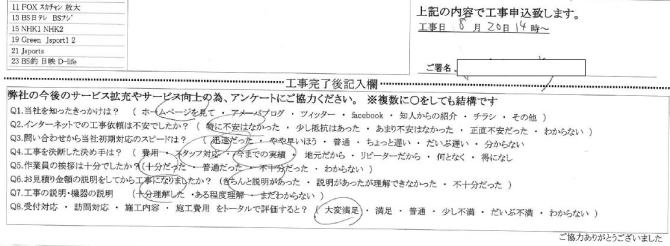 11 FOX スカチャン 放大
13 BS日テレ BSフジ
15 NHK1 NHK2
19 Green Jsport1 2
21 Jsports
23 BS釣 日映 D-life
上記の内容で工事申込致します。
工事日 8月20日14時～
ご署名
工事完了後記入欄
弊社の今後のサービス拡充やサービス向上の為、アンケートにご協力ください。 ※複数に○をしても結構です
Q1.当社を知ったきっかけは？ （ ホームページを見て ・ アメーバブログ ・ ツィッター ・ facebook ・ 知人からの紹介 ・ チラシ ・ その他 ）
Q2.インターネットでの工事依頼は不安でしたか？ （ 特に不安はなかった ・ 少し抵抗はあった ・ あまり不安はなかった ・ 正直不安だった ・ わからない ）
Q3.問い合わせから当社初期対応のスピードは？ （ 迅速だった ・ やや早いほう ・ 普通 ・ ちょっと遅い ・ だいぶ遅い ・ 分からない
Q4.工事を決断した決め手は？ （ 費用 ・ スタッフ対応 ・ 今までの実績 ・ 地元だから ・ リピーターだから ・ 何となく ・ 得になし
Q5.作業員の挨拶は十分でしたか？ （ 十分だった ・ 普通だった ・ 不十分だった ・ わからない ）
Q6.お見積り金額の説明をしてから工事になりましたか？ （ きちんと説明があった ・ 説明があったが理解できなかった ・ 不十分だった ）
Q7.工事の説明・機器の説明 （ 十分理解した ・ ある程度理解 ・ まだわからない ）
Q8.受付対応 ・ 訪問対応 ・ 施工内容 ・ 施工費用 をトータルで評価すると？ （ 大変満足 ・ 満足 ・ 普通 ・ 少し不満 ・ だいぶ不満 ・ わからない ）
ご協力ありがとうございました